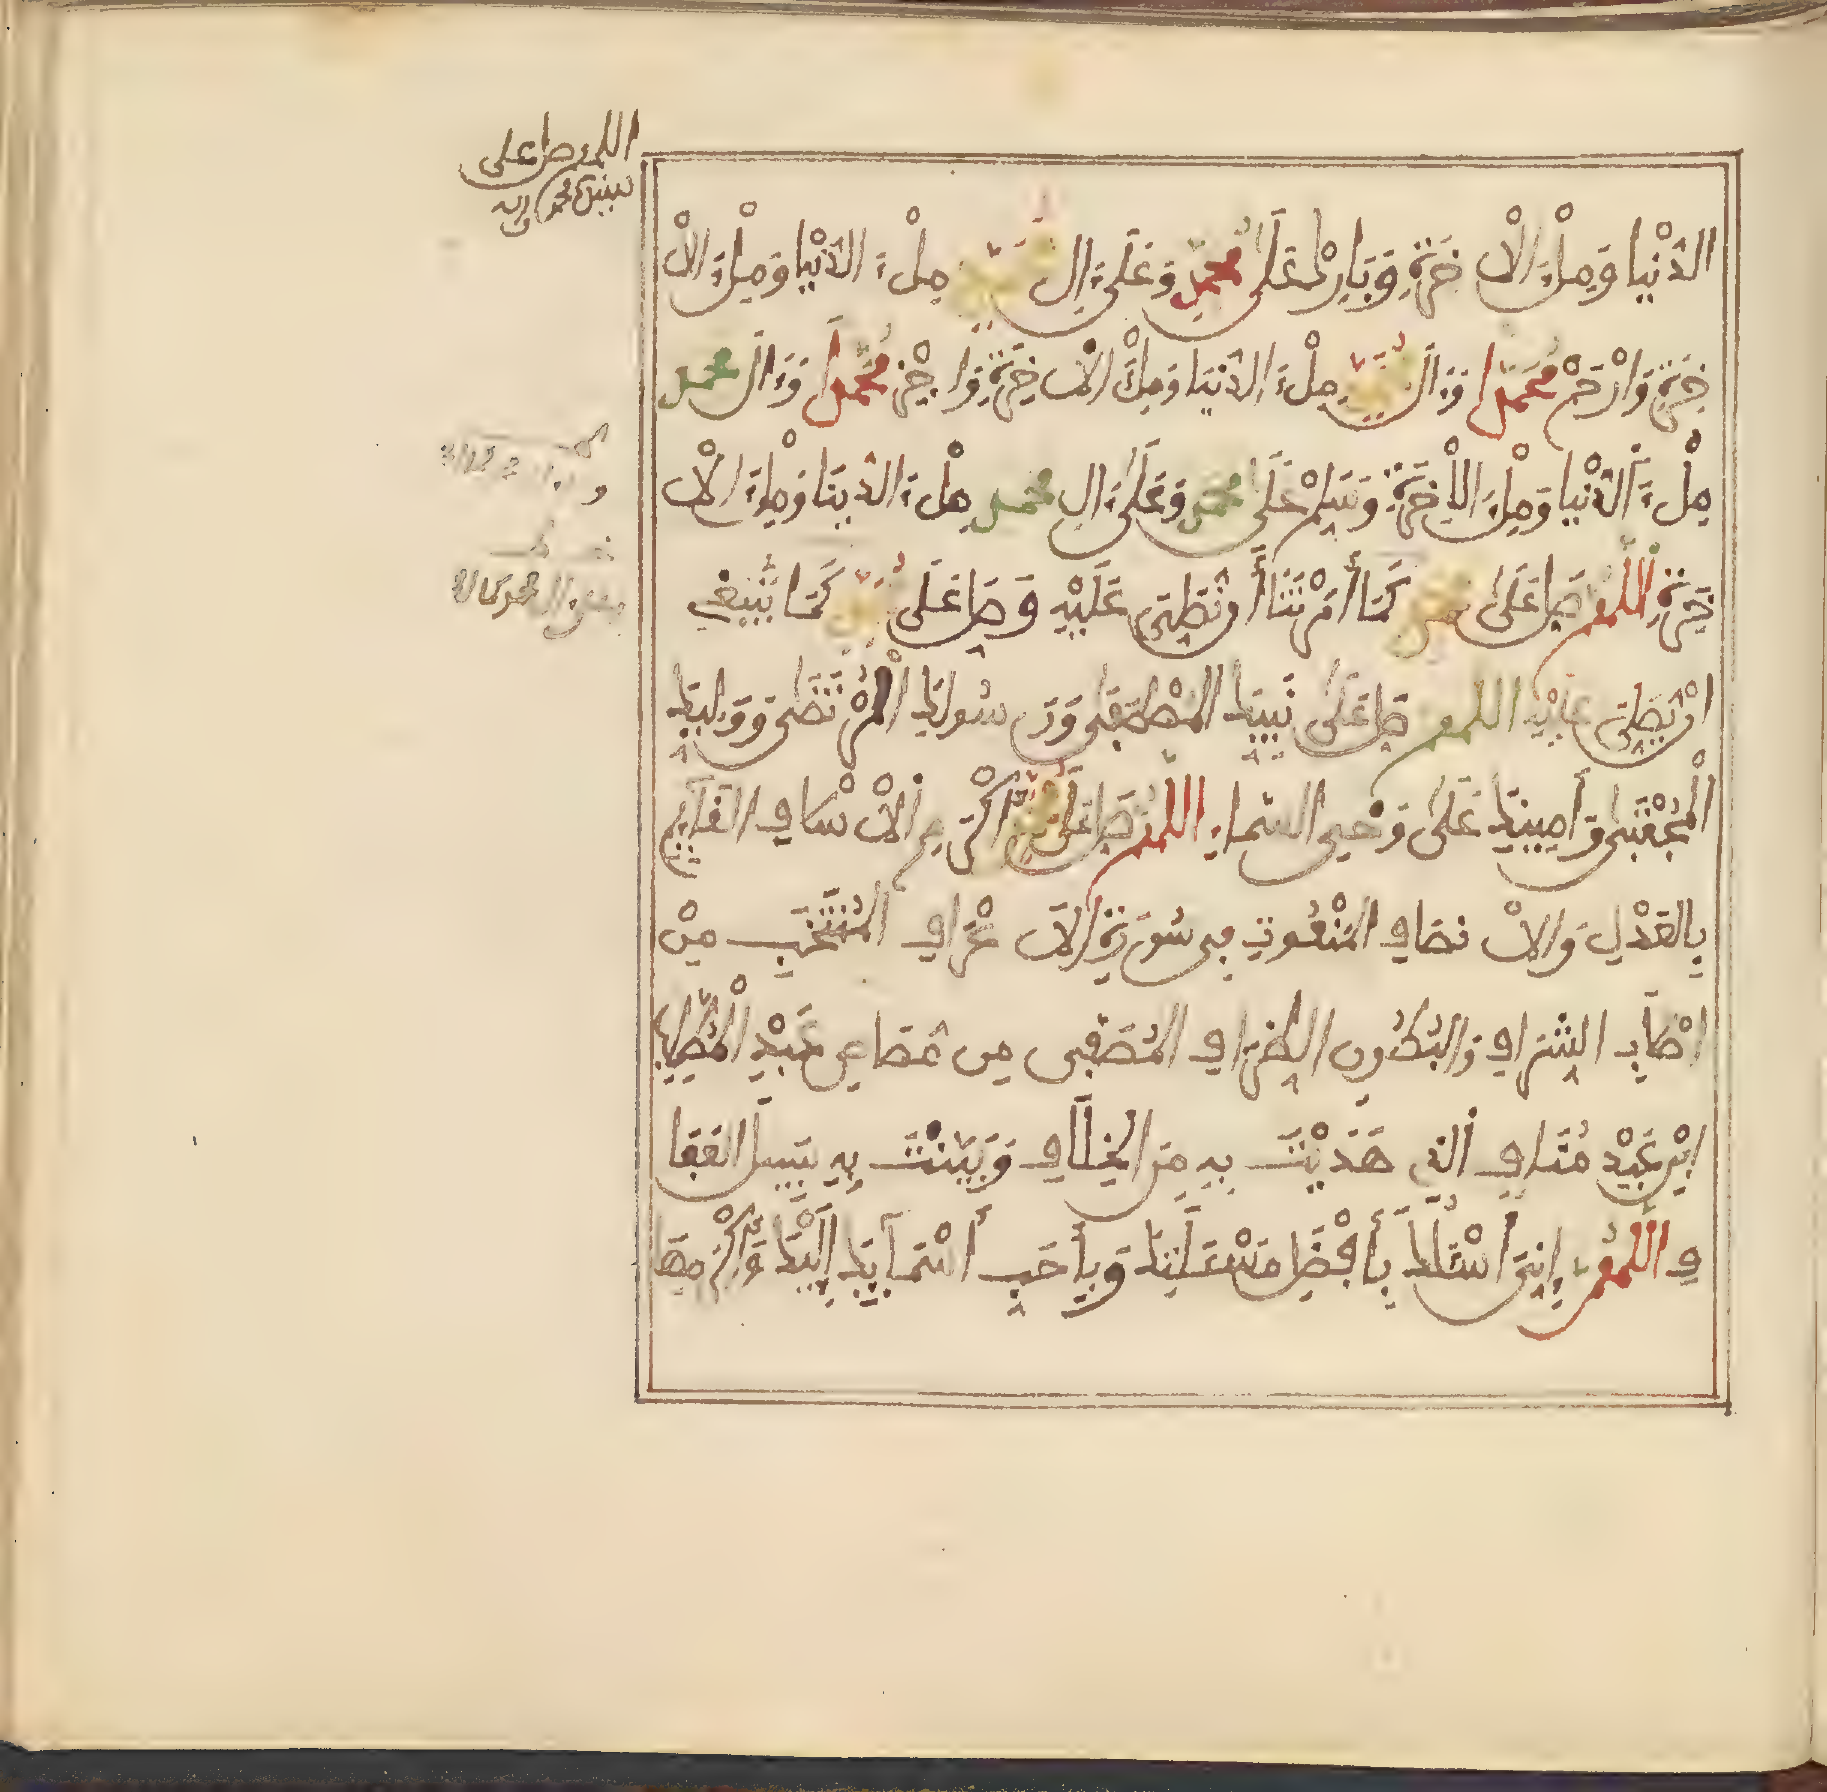 اللهم صل على
سيدنا محمد واله
الدُّنْيا وَمِلْءَ الاْ خِرَةِ وَبَارِكْ عَلَى مُحَمَّدٍ وَعَلَىٰٓ ءَالِ مُحَمَّدٍ مِلْءَ الدُّنْيا وَمِلْءَ الاْ
خِرَةِ وَارْحَمْ مُحَمَّدًا وَءَالَ مُحَمَّدٍ مِلْءَ الدُّنْيَا وَمِلْءَ الاْ خِرَةِ وَاجْزِ مُحَمَّدًا وَءَالَ مُحَمَّدٍ
مِلْءَ الدُّنْيا وَمِلْءَ الاْخِرَةِ وَسَلِّمْ عَلَى مُحَمَّدٍ وَعَلَىٰٓ ءَالِ مُحَمَّدٍ مِلْءَ الدُّنْيَا وَمِلْءَ الاْ
خِرَةِ اللهم صَلِّ عَلَى مُحَمَّدٍ كَمَا أَمَرْتَنَا أَن نُّصَلِّيَ عَلَيْهِ وَصَلِّ عَلَى مُحَمَّدٍ كَمَا يَنْبَغِي
ان يُّصَلَّىٰ عَلَيْهِ اللهم صَلِّ عَلَى نَبِيِّكَ الْمُصْطَفَى وَرَسُولِكَ الْمُرْتَضَى وَوَلِيِّكَ
الْمُجْتَبَى وَأَمِينِكَ عَلَى وَحْيِ السَّمَاءِ اللهم صَلِّ عَلَى مُحَمَّدٍ اكْرَمِ الاْسْلافِ القَآئِمِ
بِالعَدْلِ وَالاْنصَافِ المَنْعُوتِ فِي سُورَةِ الاَعْرَافِ المُنتَخَبِ مِنْ
اصْلَابِ الشِّرَافِ وَالبُطُونِ الظِّرَافِ المُصَفَّى مِن مُصَاصِ عَبْدِ الْمُطَّلِبِ
ابْنِ عَبْدِ مَنَافٍ الَّذِي هَدَيْتَ بِهِ مِنَ الخِلَافِ وَبَيَّنْتَ بِهِ سَبِيلَ العَفَا
فِ اللهم إِنِّي أَسْئَلُكَ بِأَفْضَلِ مَسْئَلَتِكَ وَبِأَحَبِّ أَسْمَآئِكَ إِلَيْكَ وَأَكْرَمِهَا